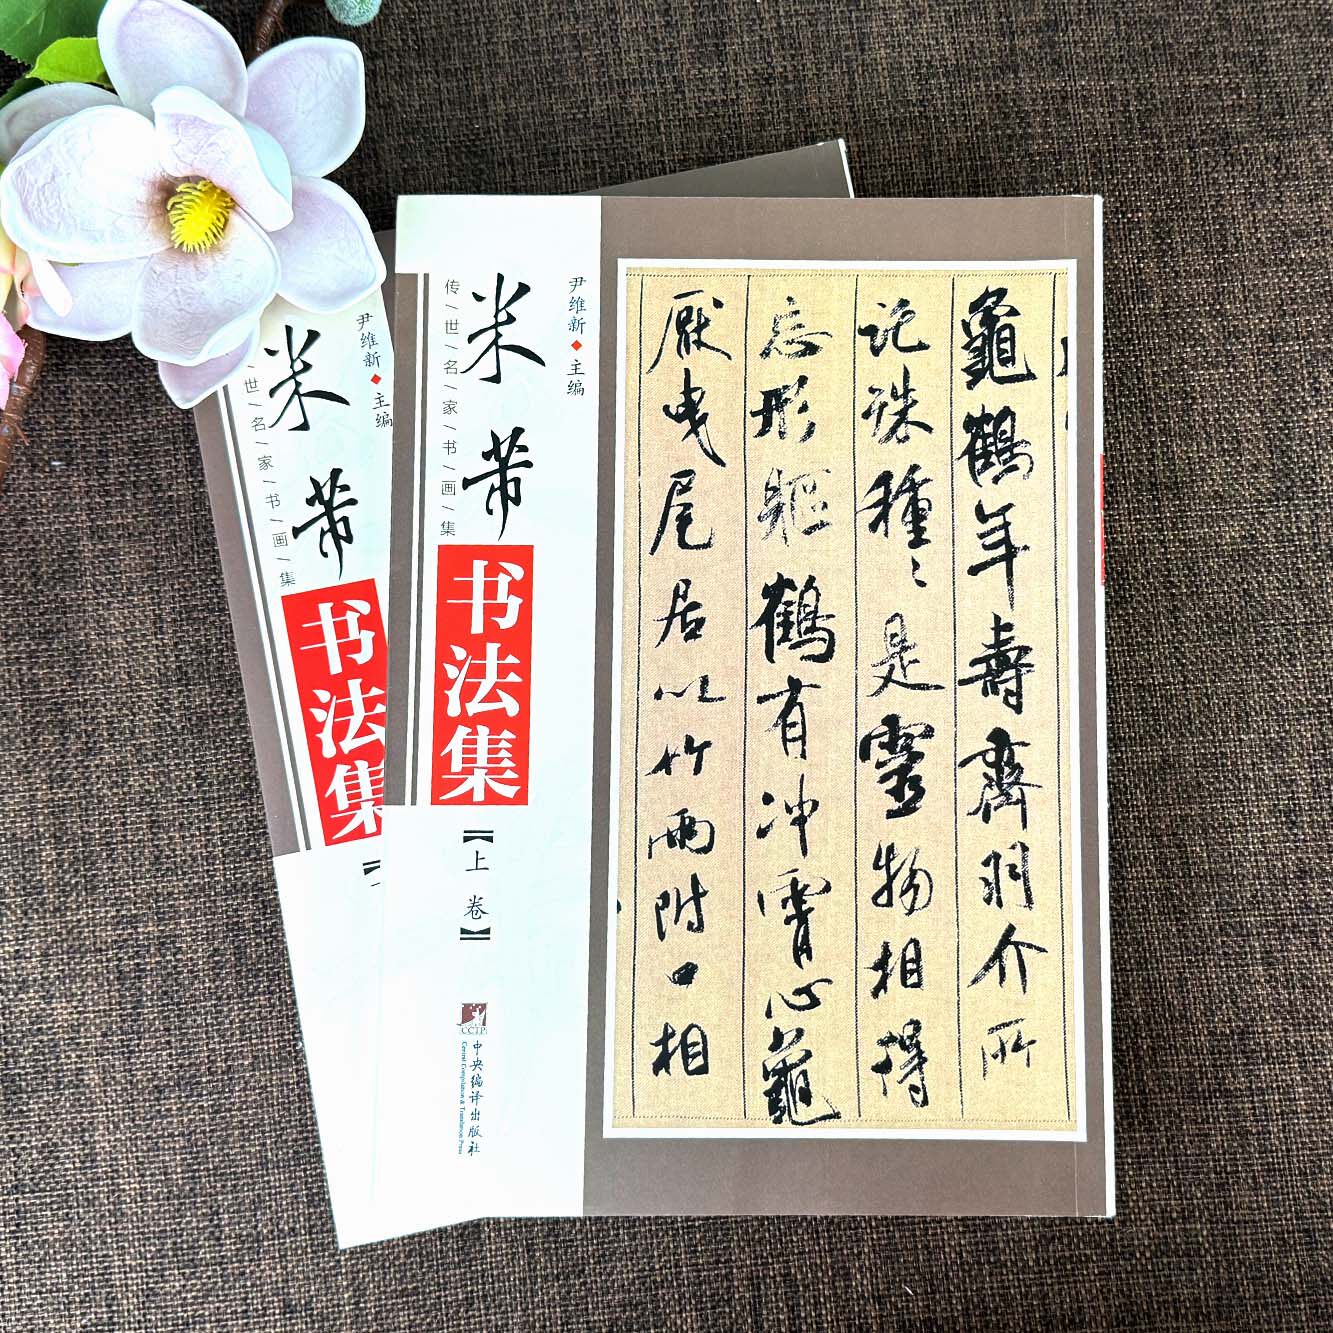 米芾
书法集
【上卷】
传/世/名/家/书/画/集
尹维新◆主编
CCTP
中央编译出版社
Central Compilation & Translation Press
龜鶴年壽齊羽介所
記殊種種是靈物相得
忘形軀鶴有冲霄心龜
厭曳尾居以竹兩附口相
米芾
书法集
世/名/家/书/画/集
尹维新◆主编